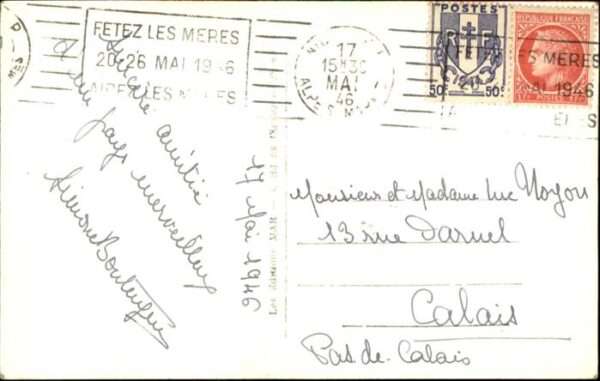 FETEZ LES MERES
20-26 MAI 1946
AIDEZ LES MERES
17
15H30
MAI
46
POSTES
RF
50c 50c
REPUBLIQUE FRANÇAISE
POSTES
S MERES
MAI 1946
ERES
Sincère amitié
d'un pays merveilleux
Simone Boutenjeu
17 Mai 1946
Les Editions MAR
Monsieur et Madame Luc Noyon
13 rue Darnel
Calais
Pas-de-Calais